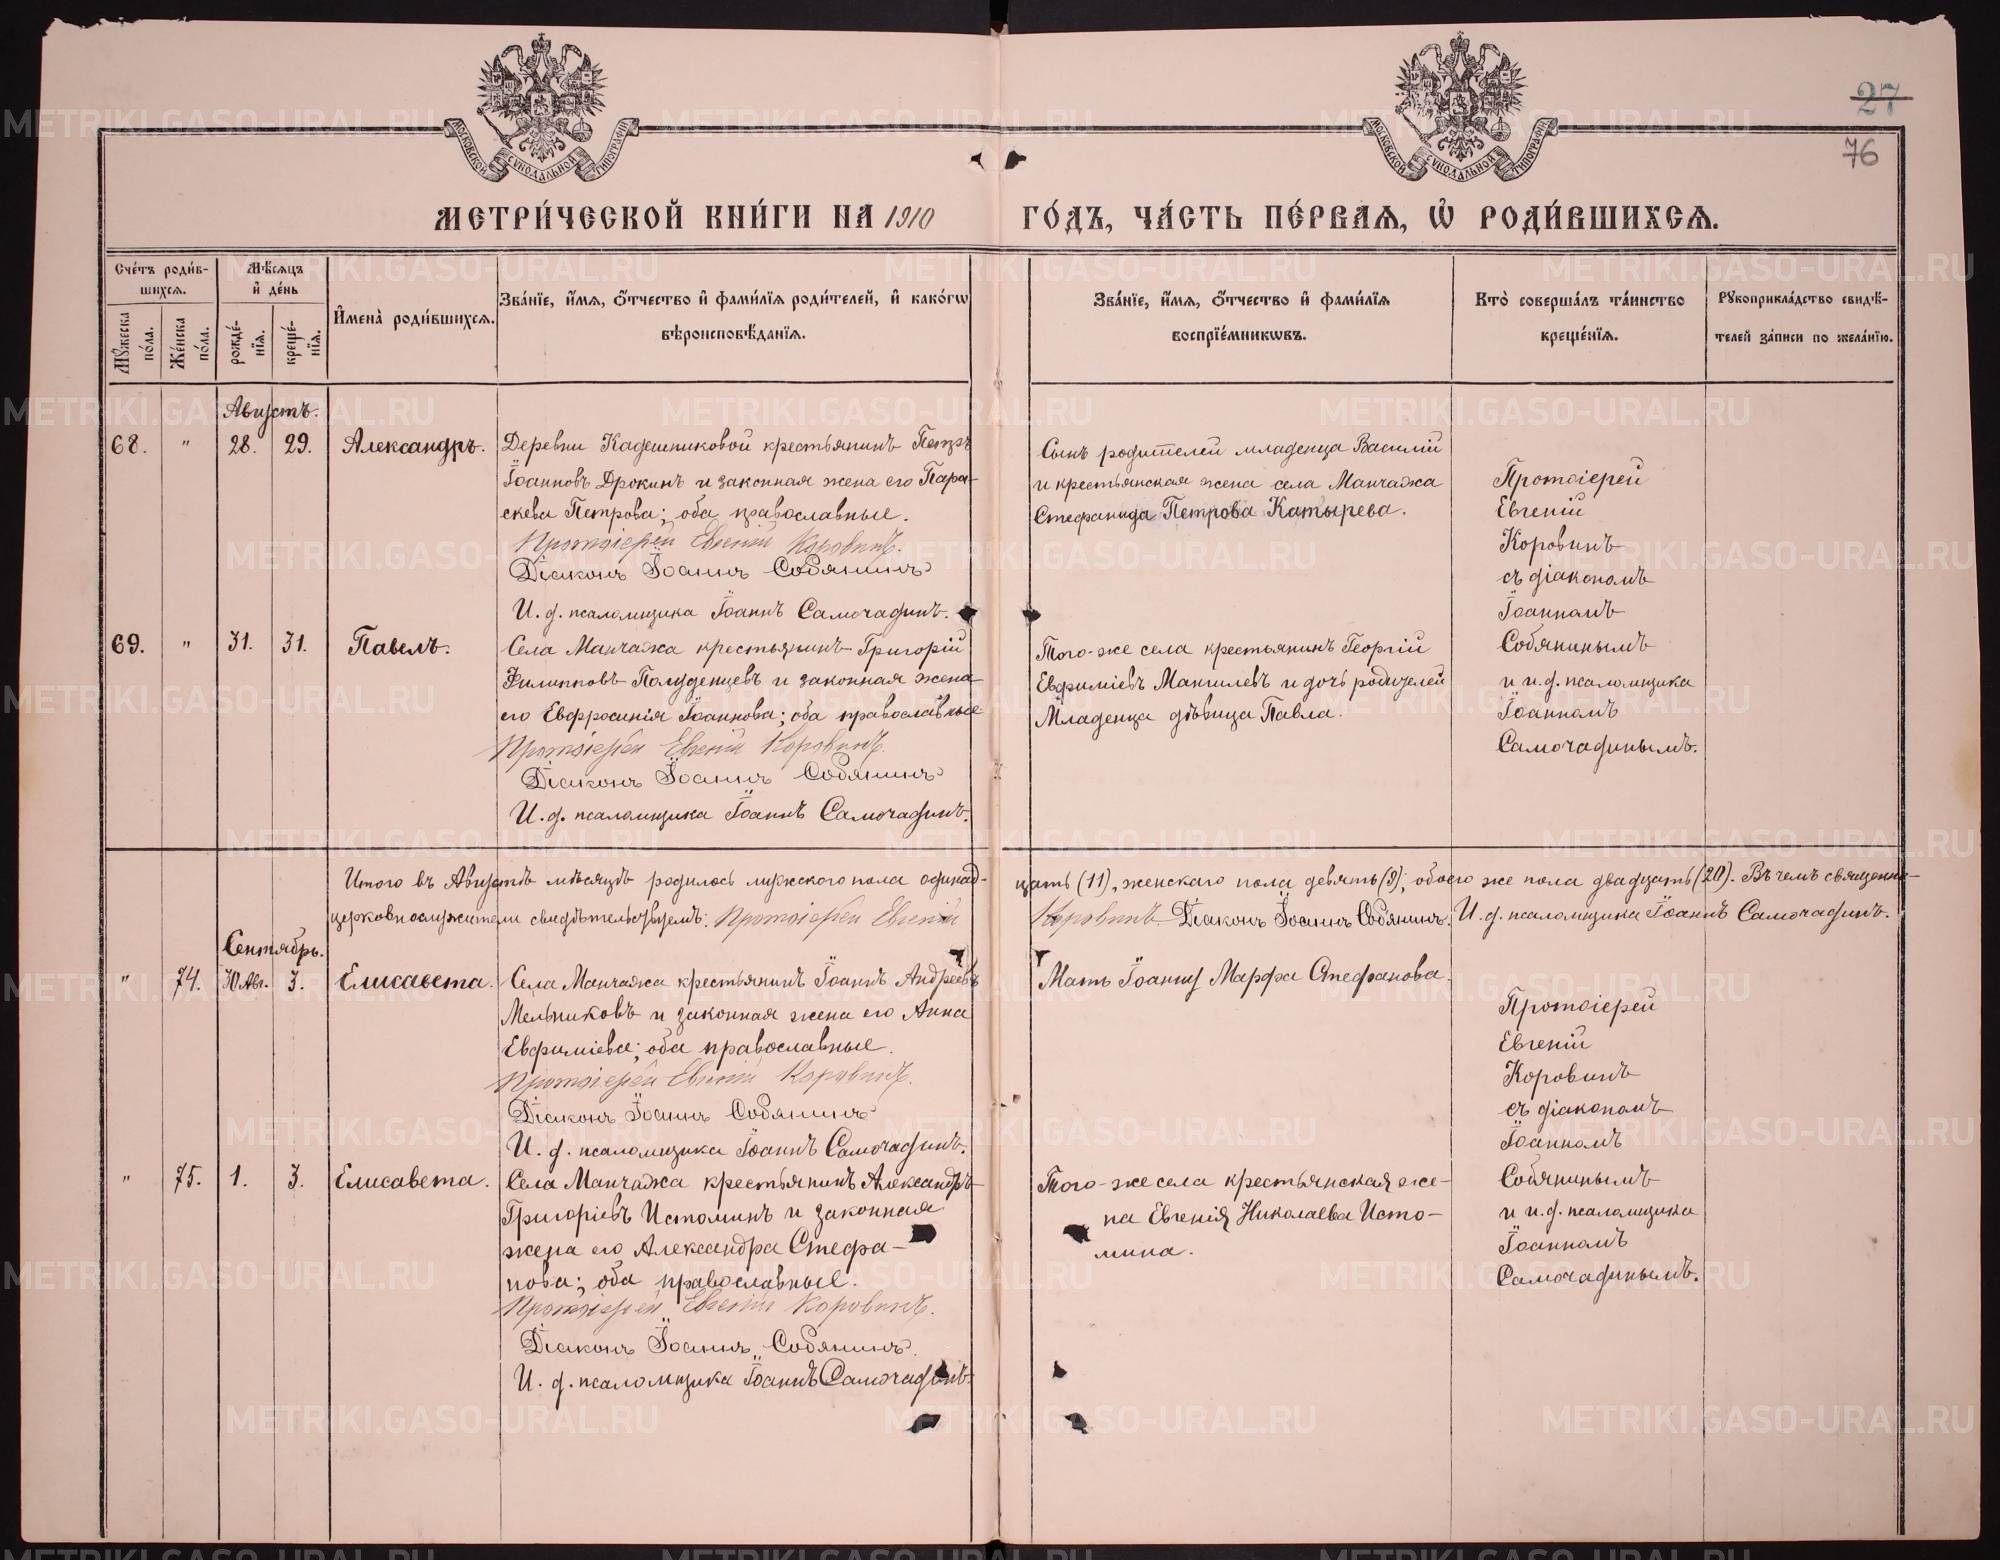 27
76
МОСКОВСКОЙ СѴНОДАЛЬНОЙ ТИПОГРАФІИ
МОСКОВСКОЙ СѴНОДАЛЬНОЙ ТИПОГРАФІИ
МЕТРИ́ЧЕСКОЙ КНИ́ГИ НА 1910 ГО́ДЪ, ЧА́СТЬ ПЕ́РВАѦ, Ѡ҆ РОДИ́ВШИХСѦ.
Сче́тъ роди́в-
шихсѧ.
Мѣ́сѧцъ
и҆ де́нь
Мꙋ́жеска по́ла.
Же́нска по́ла.
рожде́-
нїѧ.
креще́-
нїѧ.
И҆мена̀ роди́вшихсѧ.
Зва́нїе, и҆́мѧ, ѻ҆́тчество и҆ фами́лїѧ роди́телей, и҆ како́гѡ
вѣроисповѣ́данїѧ.
Зва́нїе, и҆́мѧ, ѻ҆́тчество и҆ фами́лїѧ
воспрїе́мникѡвъ.
Кто̀ соверша́лъ та́инство
креще́нїѧ.
Рꙋкоприкла́дство свидѣ́-
телей за́писи по жела́нїю.
Августъ.
68. " 28. 29. Александръ.
Деревни Кадешниковой крестьянинъ Петръ
Іоанновъ Дрокинъ и законная жена его Пара-
скева Петрова; оба православные.
Протоіерей Евгеній Коровинъ.
Діаконъ Іоаннъ Собянинъ
И. д. псаломщика Іоаннъ Самочадинъ.
Сынъ родителей младенца Василій
и крестьянская жена села Манчажа
Стефанида Петрова Катырева.
Протоіерей
Евгеній
Коровинъ
съ діакономъ
Іоанномъ
Собянинымъ
и и.д. псаломщика
Іоанномъ
Самочадинымъ.
69. " 31. 31. Павелъ.
Села Манчажа крестьянинъ Григорій
Филипповъ Полуденцевъ и законная жена
его Евфросинія Іоаннова; оба православные.
Протоіерей Евгеній Коровинъ.
Діаконъ Іоаннъ Собянинъ
И. д. псаломщика Іоаннъ Самочадинъ.
Того-же села крестьянинъ Георгій
Евфиміевъ Мангилевъ и дочь родителей
Младенца дѣвица Павла.
Итого въ Августѣ мѣсяцѣ родилось мужского пола одинад-
цать (11), женскаго пола девять (9), обоего же пола двадцать (20). Въ чемъ священно-
церковнослужители свидѣтельствуемъ: Протоіерей Евгеній
Коровинъ. Діаконъ Іоаннъ Собянинъ. И. д. псаломщика Іоаннъ Самочадинъ.
Сентябрь.
" 74. 30 Авг. 3. Елисавета.
Села Манчажа крестьянинъ Іоаннъ Андреевъ
Мельниковъ и законная жена его Анна
Евфиміева; оба православные.
Протоіерей Евгеній Коровинъ.
Діаконъ Іоаннъ Собянинъ
И. д. псаломщика Іоаннъ Самочадинъ.
Мать Марфа Стефанова.
Протоіерей
Евгеній
Коровинъ
съ діакономъ
Іоанномъ
Собянинымъ
и и.д. псаломщика
Іоанномъ
Самочадинымъ.
" 75. 1. 3. Елисавета.
Села Манчажа крестьянинъ Александръ
Григоріевъ Истоминъ и законная
жена его Александра Стефа-
нова; оба православные.
Протоіерей Евгеній Коровинъ.
Діаконъ Іоаннъ Собянинъ.
И. д. псаломщика Іоаннъ Самочадинъ.
Того-же села крестьянская же-
на Евгенія Николаева Исто-
мина.
METRIKI.GASO-URAL.RU